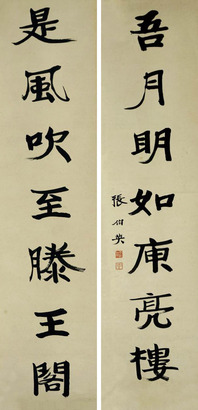 吾月明如庾亮樓
是風吹至滕王閣
張伯英